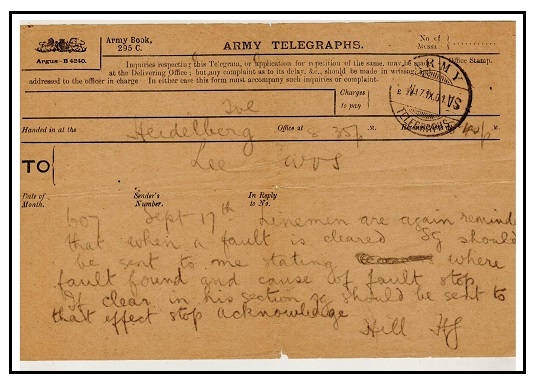 Army Book,
295 C.
Argus—B 4240.
ARMY TELEGRAPHS.
No of
Messa
Office Stamp.
Inquiries respecting this Telegram, or application for repetition of the same, may be made
at the Delivering Office; but any complaint as to its delay, &c., should be made in writing
addressed to the officer in charge In either case this form must accompany such inquiries or complaint.
ARMY
TELEGRAPHS
SA
Charges
to pay
Handed in at the
Heidelberg
Office at 8 35 p.M.
TO
Lee
Date of
Month.
Sender's
Number.
In Reply
to No.
607 Sept 17th Linemen are again remind
that when a fault is cleared Sg should
be sent to me stating where
fault found and cause of fault stop
If clear in his section sg should be sent to
that effect stop acknowledge
Hill